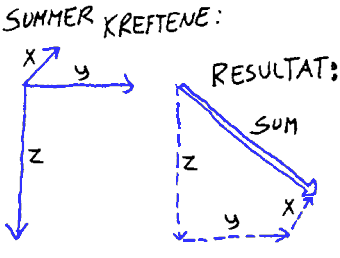 SUMMER KREFTENE:
X
y
Z
RESULTAT:
SUM
Z
X
y